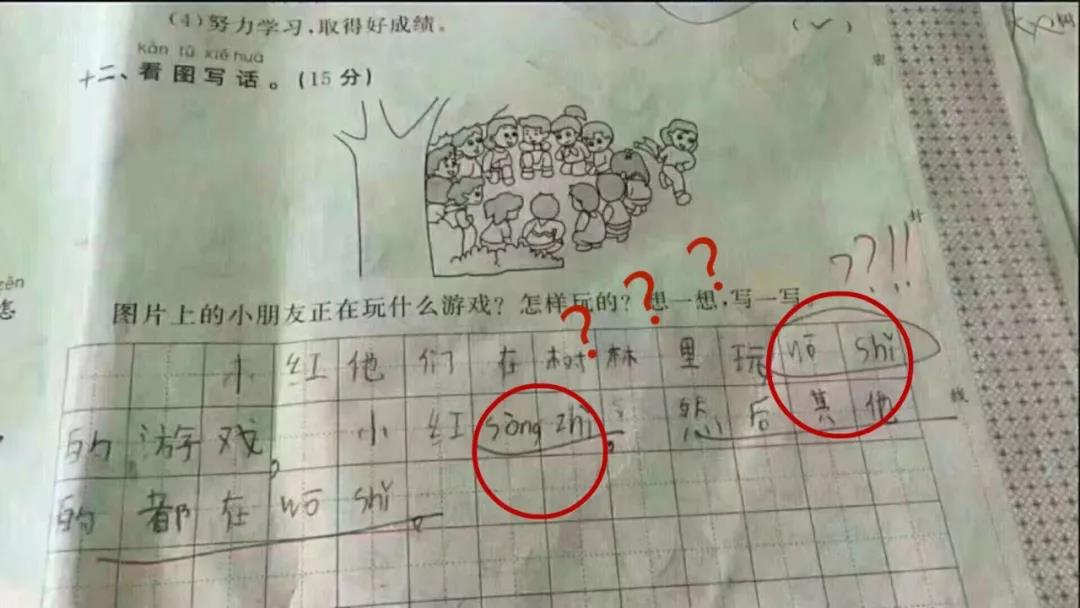 (4)努力学习,取得好成绩。 (✓)
kàn tú xiě huà
十二、看图写话。(15分)
密
封
??!!
? ? ?
图片上的小朋友正在玩什么游戏?怎样玩的?想一想,写一写。
小红他们在树林里玩wō shǐ
线
的游戏。小红sòng zhǐ。然后其他
的都在wō shǐ。